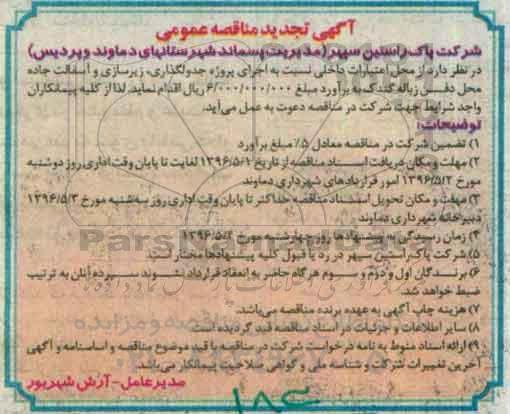 آگهی تجدید مناقصه عمومی
شرکت پاک راستین سپهر (مدیریت پسماند شهرستانهای دماوند و پردیس)
در نظر دارد از محل اعتبارات داخلی نسبت به اجرای پروژه جدولگذاری، زیرسازی و آسفالت جاده
محل دفن زباله گندک به برآورد مبلغ ۶/۰۰۰/۰۰۰/۰۰۰ ریال اقدام نماید. لذا از کلیه پیمانکاران
واجد شرایط جهت شرکت در مناقصه دعوت به عمل می‌آید.
توضیحات:
۱) تضمین شرکت در مناقصه معادل ۵٪ مبلغ برآورد
۲) مهلت و مکان دریافت اسناد مناقصه از تاریخ ۱۳۹۶/۵/۱ لغایت تا پایان وقت اداری روز دوشنبه
مورخ ۱۳۹۶/۵/۲ امور قراردادهای شهرداری دماوند
۳) مهلت و مکان تحویل اسناد مناقصه حداکثر تا پایان وقت اداری روز سه‌شنبه مورخ ۱۳۹۶/۵/۳
دبیرخانه شهرداری دماوند
۴) زمان رسیدگی به پیشنهادها روز چهارشنبه مورخ ۱۳۹۶/۵/۴
۵) شرکت پاک راستین سپهر در رد یا قبول کلیه پیشنهادها مختار است.
۶) برندگان اول و دوم و سوم هرگاه حاضر به انعقاد قرارداد نشوند سپرده آنان به ترتیب
ضبط خواهد شد.
۷) هزینه چاپ آگهی به عهده برنده مناقصه می‌باشد.
۸) سایر اطلاعات و جزئیات در اسناد مناقصه قید گردیده است.
۹) ارائه اسناد منوط به نامه درخواست شرکت در مناقصه با قید موضوع مناقصه و اساسنامه و آگهی
آخرین تغییرات شرکت و شناسه ملی و گواهی صلاحیت پیمانکار می‌باشد.
مدیرعامل - آرش شهرپور
۱۸۴